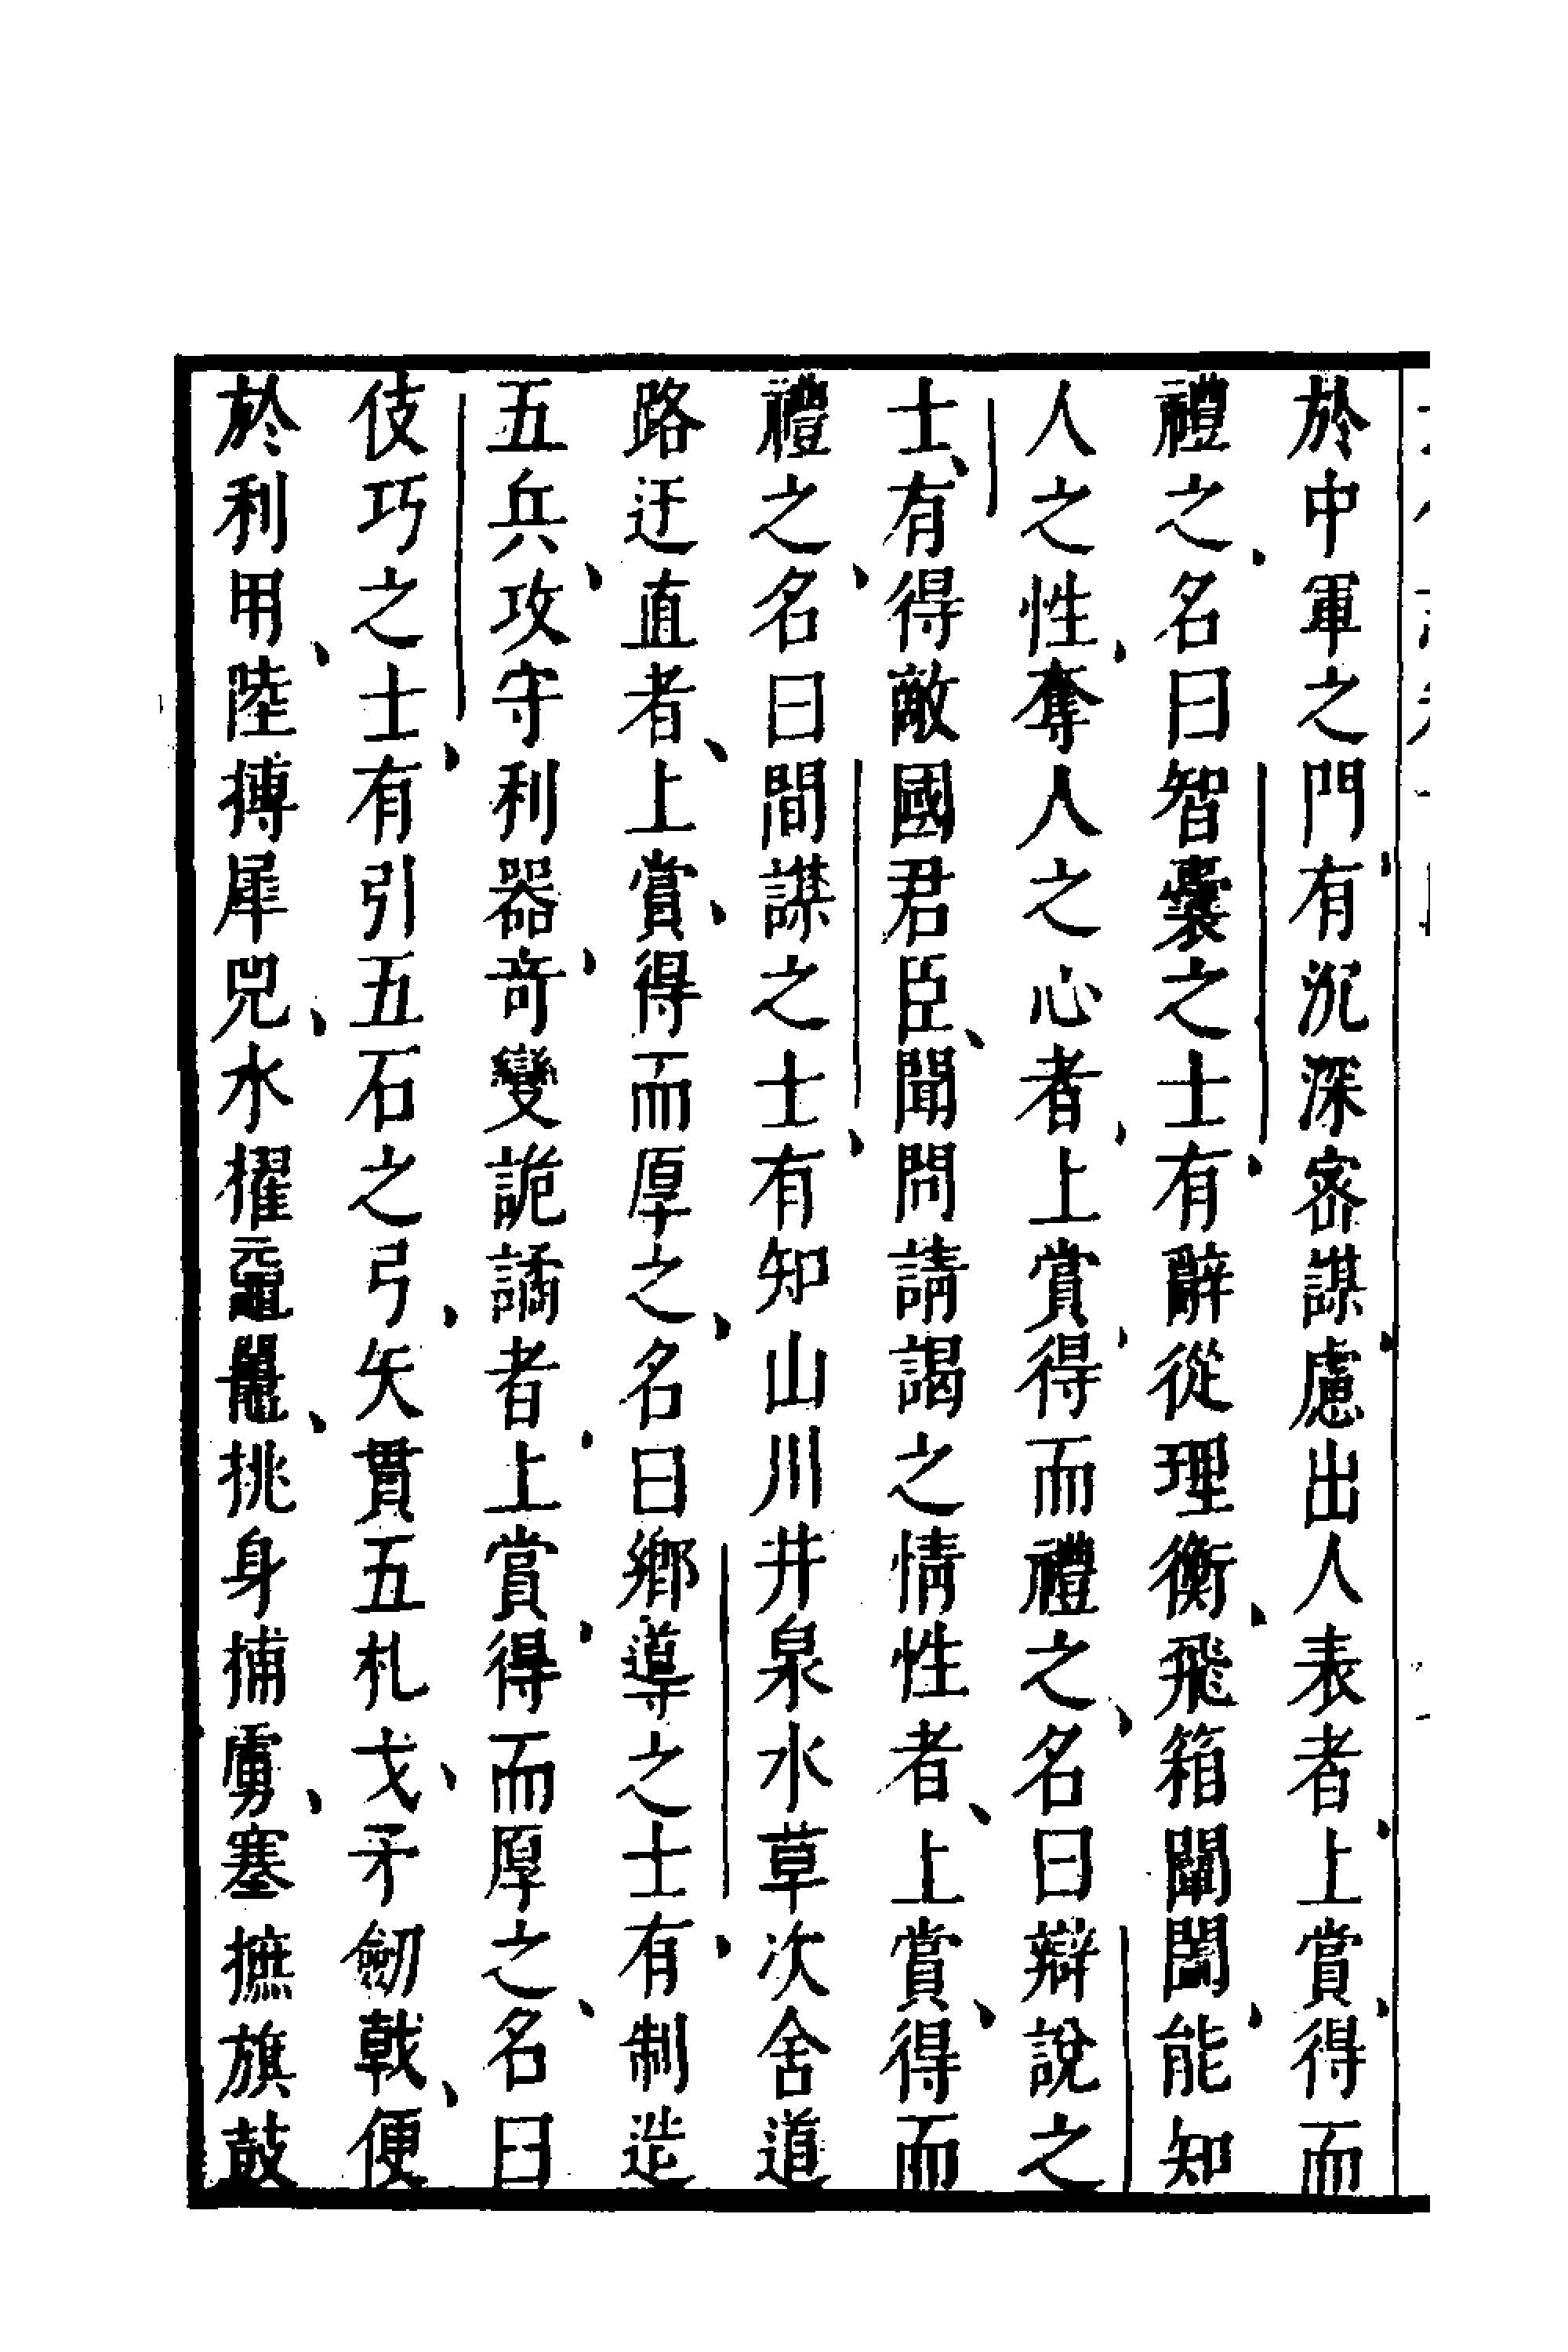 於中軍之門有沉深密謀慮出人表者上賞得而
禮之名曰智囊之士有辭從理衡飛箝闔闢能知
人之性奪人之心者上賞得而禮之名曰辯說之
士有得敵國君臣聞問請謁之情性者上賞得而
禮之名曰間諜之士有知山川井泉水草次舍道
路迂直者上賞得而厚之名曰鄉導之士有制造
五兵攻守利器奇變詭譎者上賞得而厚之名曰
伎巧之士有引五石之弓矢貫五札戈矛劒戟便
於利用陸搏犀兕水擢黿鼉挑身捕虜塞摭旗鼓